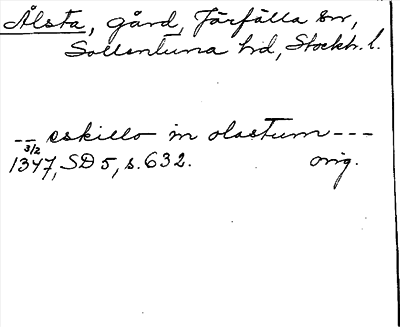 Ålsta, gård, Järfälla sn,
Sollentuna hd, Stockh. l.
--- eskillo in olastum ---
3/2
1347, SD 5, s. 632. orig.